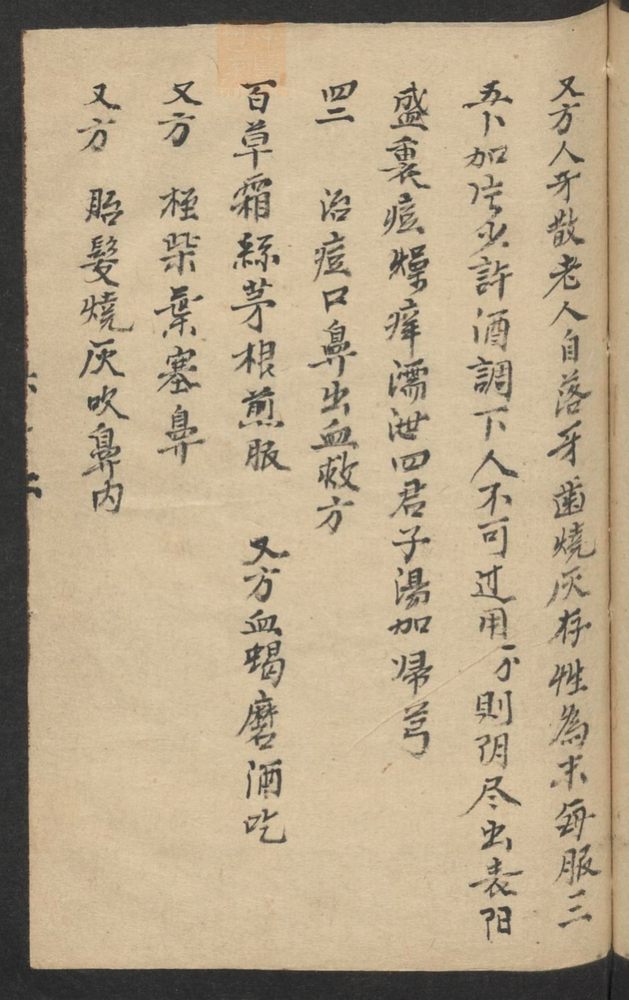 又方人牙散老人自落牙齒燒灰存性為末每服三
五卜加片少許酒調下人不可过用不則阴尽出表阳
盛裏痘燥痒濡泄四君子湯加歸芎
四二 治痘口鼻出血救方
百草霜絲茅根煎服 又方血蝎磨酒吃
又方 柴葉塞鼻
又方 胎髮燒灰吹鼻内